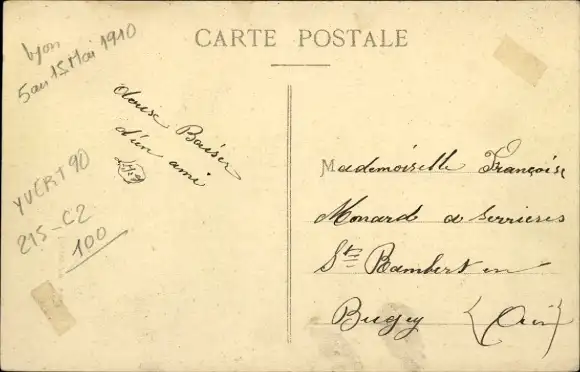 CARTE POSTALE
Lyon
5 au 15 Mai 1910
douse Baiser
d'un ami
YVERT 90
215-C2
100
Mademoiselle Françoise
Monard a Serrieres
Ste Rambert en
Bugey (Ain)